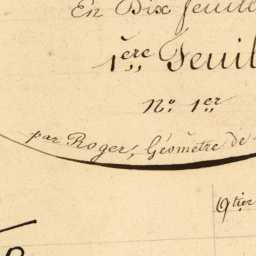 En Dix feuille
1ère Feuil
N° 1er
par Roger, Géomètre de
Qtier